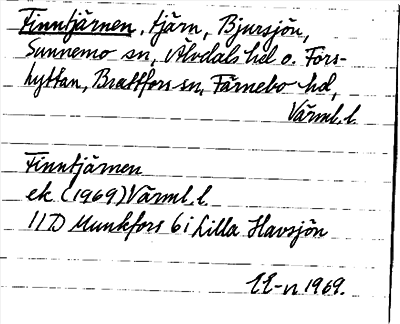 Finntjärnen, tjärn, Bjursjön,
Sunnemo sn, Älvdals hd o. Fors-
hyttan, Brattfors sn, Färnebo hd,
Värml. l.
Finntjärnen
ek (1969) Värml. l.
11D Munkfors 6i Lilla Havsjön
EE-n 1969.